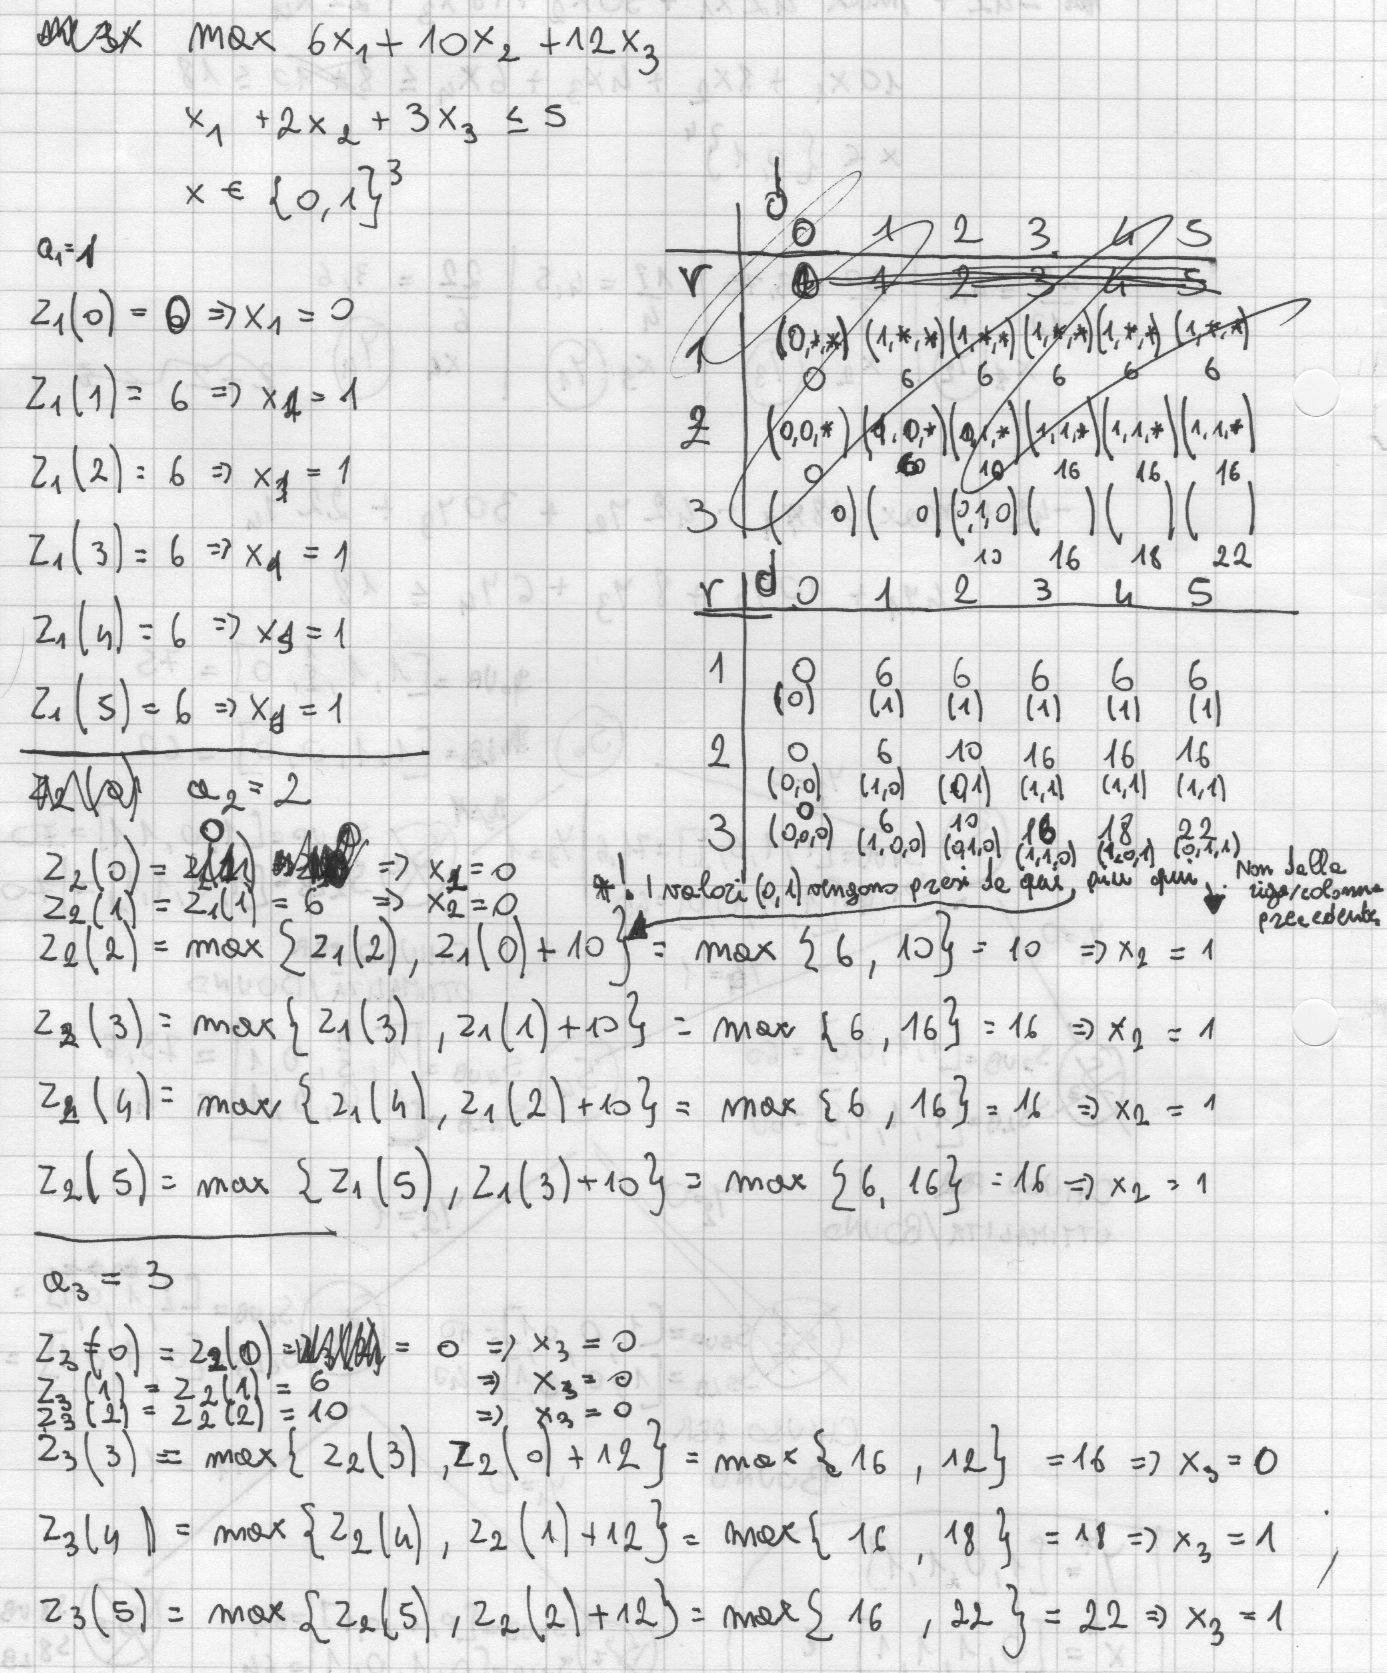 max 6x₁ + 10x₂ + 12x₃
x₁ + 2x₂ + 3x₃ ≤ 5
x ∈ {0,1}³
a₁=1
z₁(0) = 0 => x₁ = 0
z₁(1) = 6 => x₁ = 1
z₁(2) = 6 => x₁ = 1
z₁(3) = 6 => x₁ = 1
z₁(4) = 6 => x₁ = 1
z₁(5) = 6 => x₁ = 1
d
0 1 2 3 4 5
r 1 2 3 4 5
1 (0,*,*) (1,*,*) (1,*,*) (1,*,*) (1,*,*) (1,*,*)
0 6 6 6 6 6
2 (0,0,*) (1,0,*) (0,1,*) (1,1,*) (1,1,*) (1,1,*)
0 6 10 16 16 16
3 ( 0) ( 0) (0,1,0) ( ) ( ) ( )
10 16 18 22
r d 0 1 2 3 4 5
1 0 6 6 6 6 6
(0) (1) (1) (1) (1) (1)
2 0 6 10 16 16 16
(0,0) (1,0) (0,1) (1,1) (1,1) (1,1)
3 0 6 10 16 18 22
(0,0,0) (1,0,0) (0,1,0) (1,1,0) (1,0,1) (0,1,1)
*! I valori (0,1) vengono presi da qui, qui
Non dalla
riga/colonna
precedente
a₂ = 2
z₂(0) = 0 => x₂ = 0
z₂(1) = z₁(1) = 6 => x₂ = 0
z₂(2) = max {z₁(2), z₁(0)+10} = max {6, 10} = 10 => x₂ = 1
z₂(3) = max {z₁(3), z₁(1)+10} = max {6, 16} = 16 => x₂ = 1
z₂(4) = max {z₁(4), z₁(2)+10} = max {6, 16} = 16 => x₂ = 1
z₂(5) = max {z₁(5), z₁(3)+10} = max {6, 16} = 16 => x₂ = 1
a₃ = 3
z₃(0) = z₂(0) = = 0 => x₃ = 0
z₃(1) = z₂(1) = 6 => x₃ = 0
z₃(2) = z₂(2) = 10 => x₃ = 0
z₃(3) = max {z₂(3), z₂(0)+12} = max {16, 12} = 16 => x₃ = 0
z₃(4) = max {z₂(4), z₂(1)+12} = max {16, 18} = 18 => x₃ = 1
z₃(5) = max {z₂(5), z₂(2)+12} = max {16, 22} = 22 => x₃ = 1